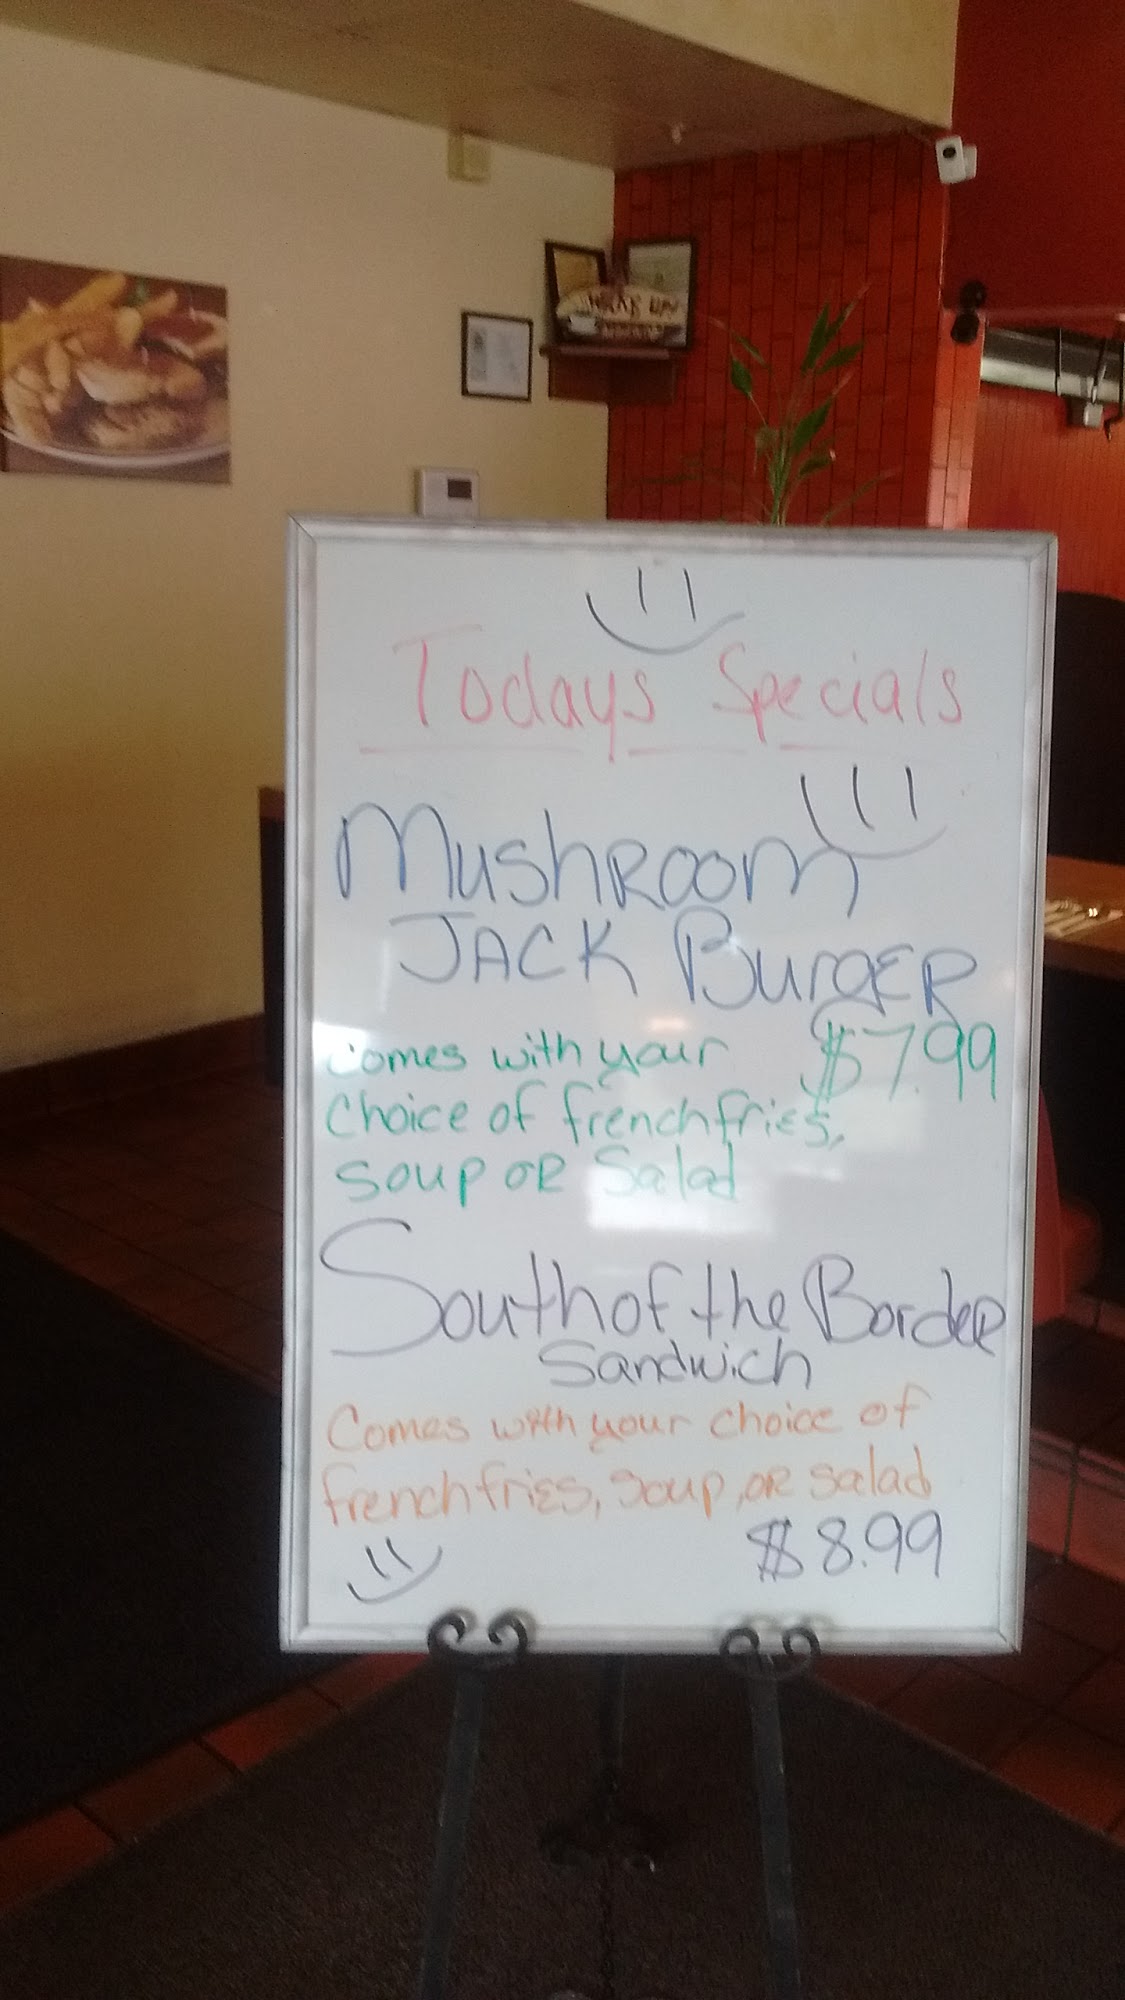 Todays Specials
Mushroom
JACK BurgER
comes with your $7.99
choice of french fries,
soup or Salad
South of the Border
Sandwich
Comes with your choice of
french fries, soup, or salad
$8.99